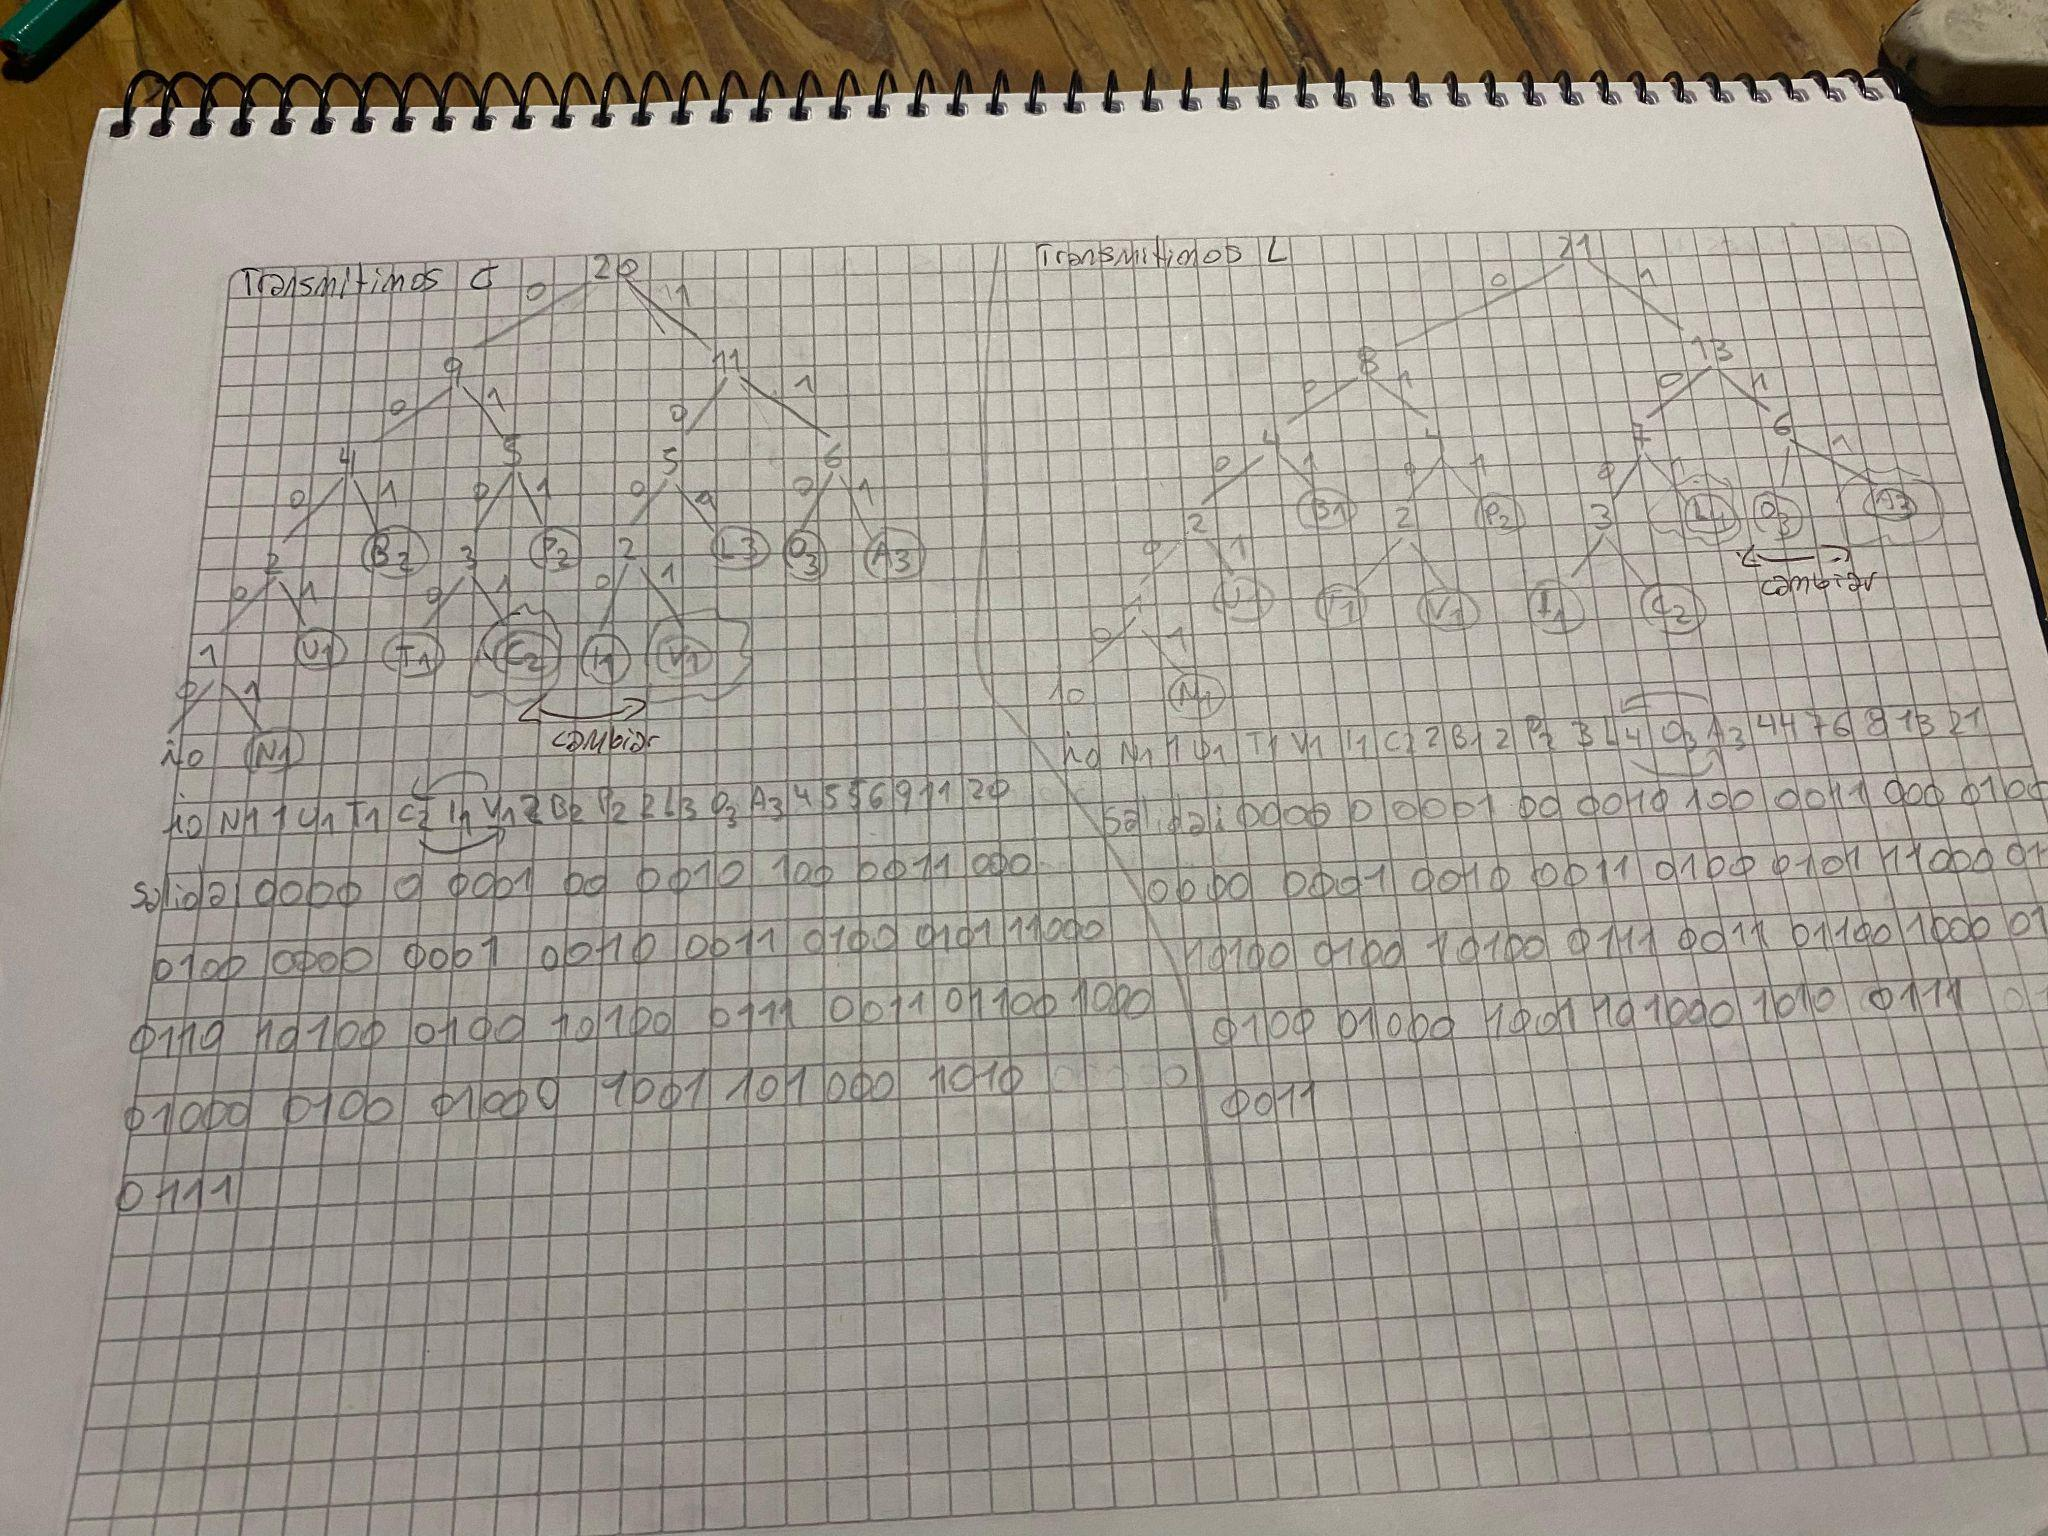 Transmitimos C
20
0 1
9 11
0 1 0 1
4 5 5 6
0 1 0 1 0 1 0 1
2 B2 3 P2 2 L3 O3 A3
0 1 0 1 0 1
1 U1 T1 C2 I1 V1
0 1
cambiar
ho N1
ho N1 1 U1 T1 C2 I1 V1 2 B2 P2 2 L3 O3 A3 4 5 5 6 9 11 20
salida 0000 0 0001 00 0010 100 0011 000
0100 0000 0001 0010 0011 0100 0101 11000
0110 10100 0100 10100 0111 0011 01100 1000
01000 0100 01000 1001 101000 1010
0111
Transmitimos L
21
0 1
8 13
0 1 0 1
4 4 7 6
0 1 0 1 0 1 1
2 B1 2 P2 3 L4 O3 A3
0 1
cambiar
1 U1 T1 V1 I1 C2
0 1
N1
ho N1 1 U1 T1 V1 I1 C2 2 B1 2 P2 3 L4 O3 A3 4 4 7 6 8 13 21
salida: 0000 0 0001 00 0010 100 0011 000 0100
0000 0001 0010 0011 0100 0101 11000 01
10100 0100 10100 0111 0011 01100 1000 01
0100 01000 1001 101000 1010 0111
0011